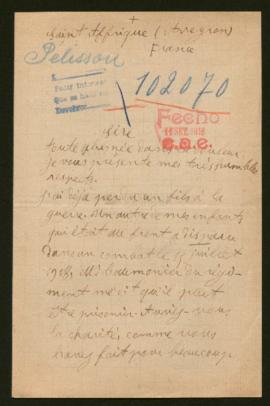 Saint Affrique (Aveyron)
France
Pelisson
102070
Fecho
SET. 1918
Sire
toute abimée dans
je vous présente mes très humbles
respects.
J'ai déjà perdu un fils à la
guerre. Un autre de mes enfants
qui était au front a disparu
dans un combat le juillet
1918. M. l'aumonier du régi-
ment me dit qu'il peut
être prisonier. Auriez-vous
la charité, comme vous
l'avez fait pour beaucoup